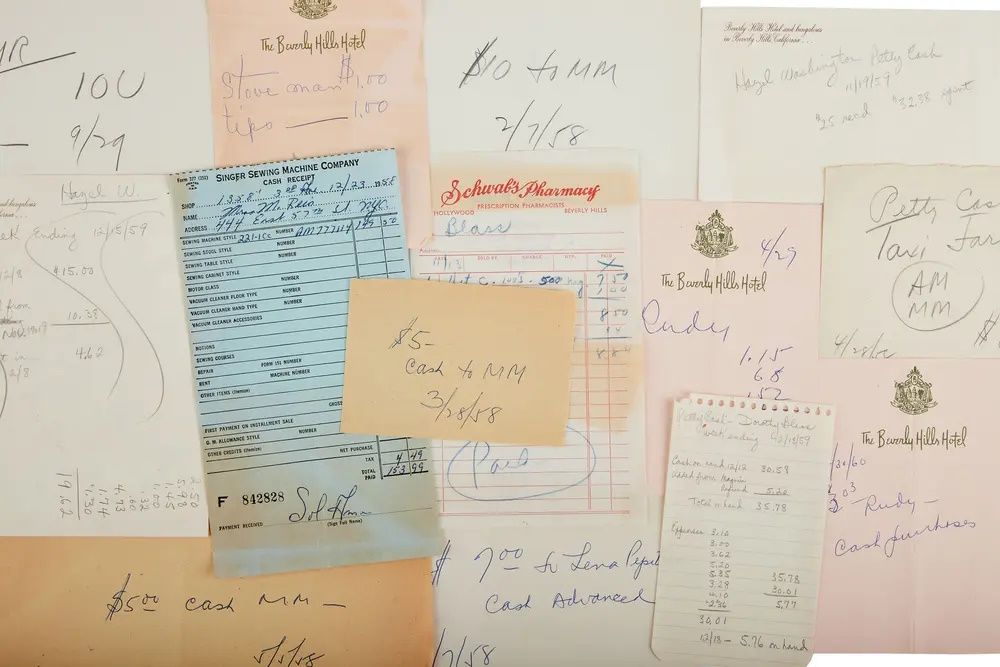 IOU
9/29
The Beverly Hills Hotel
Stove man $1.00
tips 1.00
$10 to MM
2/7/58
Beverly Hills Hotel and bungalows
in Beverly Hills California...
Hazel Washington Petty Cash
11/19/59
$25 recd $32.38 spent
Hazel W.
Ending 12/15/59
12/8 $15.00
from
10.38
4.62
2/8
19.62
7.30
1.74
4.73
Form 377
SINGER SEWING MACHINE COMPANY
CASH RECEIPT
SHOP 12/23 1958
NAME
ADDRESS 444 East 57th St NYC
SEWING MACHINE STYLE 221-1cc NUMBER AM777114 149 50
SEWING STOOL STYLE
SEWING TABLE STYLE
SEWING CABINET STYLE
MOTOR CLASS NUMBER
VACUUM CLEANER FLOOR TYPE NUMBER
VACUUM CLEANER HAND TYPE NUMBER
VACUUM CLEANER ACCESSORIES
NOTIONS
SEWING COURSES
REPAIR FORM 151 NUMBER
RENT MACHINE NUMBER
OTHER ITEMS (Itemize)
GROSS
FIRST PAYMENT ON INSTALLMENT SALE
O. M. ALLOWANCE STYLE NUMBER
OTHER CREDITS (Itemize)
NET PURCHASE
TAX 4 49
TOTAL PAID 153 99
F 842828
PAYMENT RECEIVED
(Sign Full Name)
Schwab's Pharmacy
PRESCRIPTION PHARMACISTS
HOLLYWOOD BEVERLY HILLS
Blass
11/13
C. 100's. 500 mg 7 50
1 00
8 50
Paid
$5-
Cash to MM
3/28/58
4/29
The Beverly Hills Hotel
Rudy
1.15
68
.52
Petty Cas
AM
MM
4/28/60
$
The Beverly Hills Hotel
/30/60
Rudy -
Cash purchases
week ending 12/12/59
Cash on hand 12/12 30.58
added from Magnin
Refund 5.20
Total on hand 35.78
Expenses 3.10
3.00
3.62
5.20
5.35 35.78
3.28 30.01
4.10 5.77
2.36
30.01
12/18 - 5.76 on hand
$5.00 cash MM -
5/5/58
$7.00 to Lena Pepit
Cash Advanced
/7/58